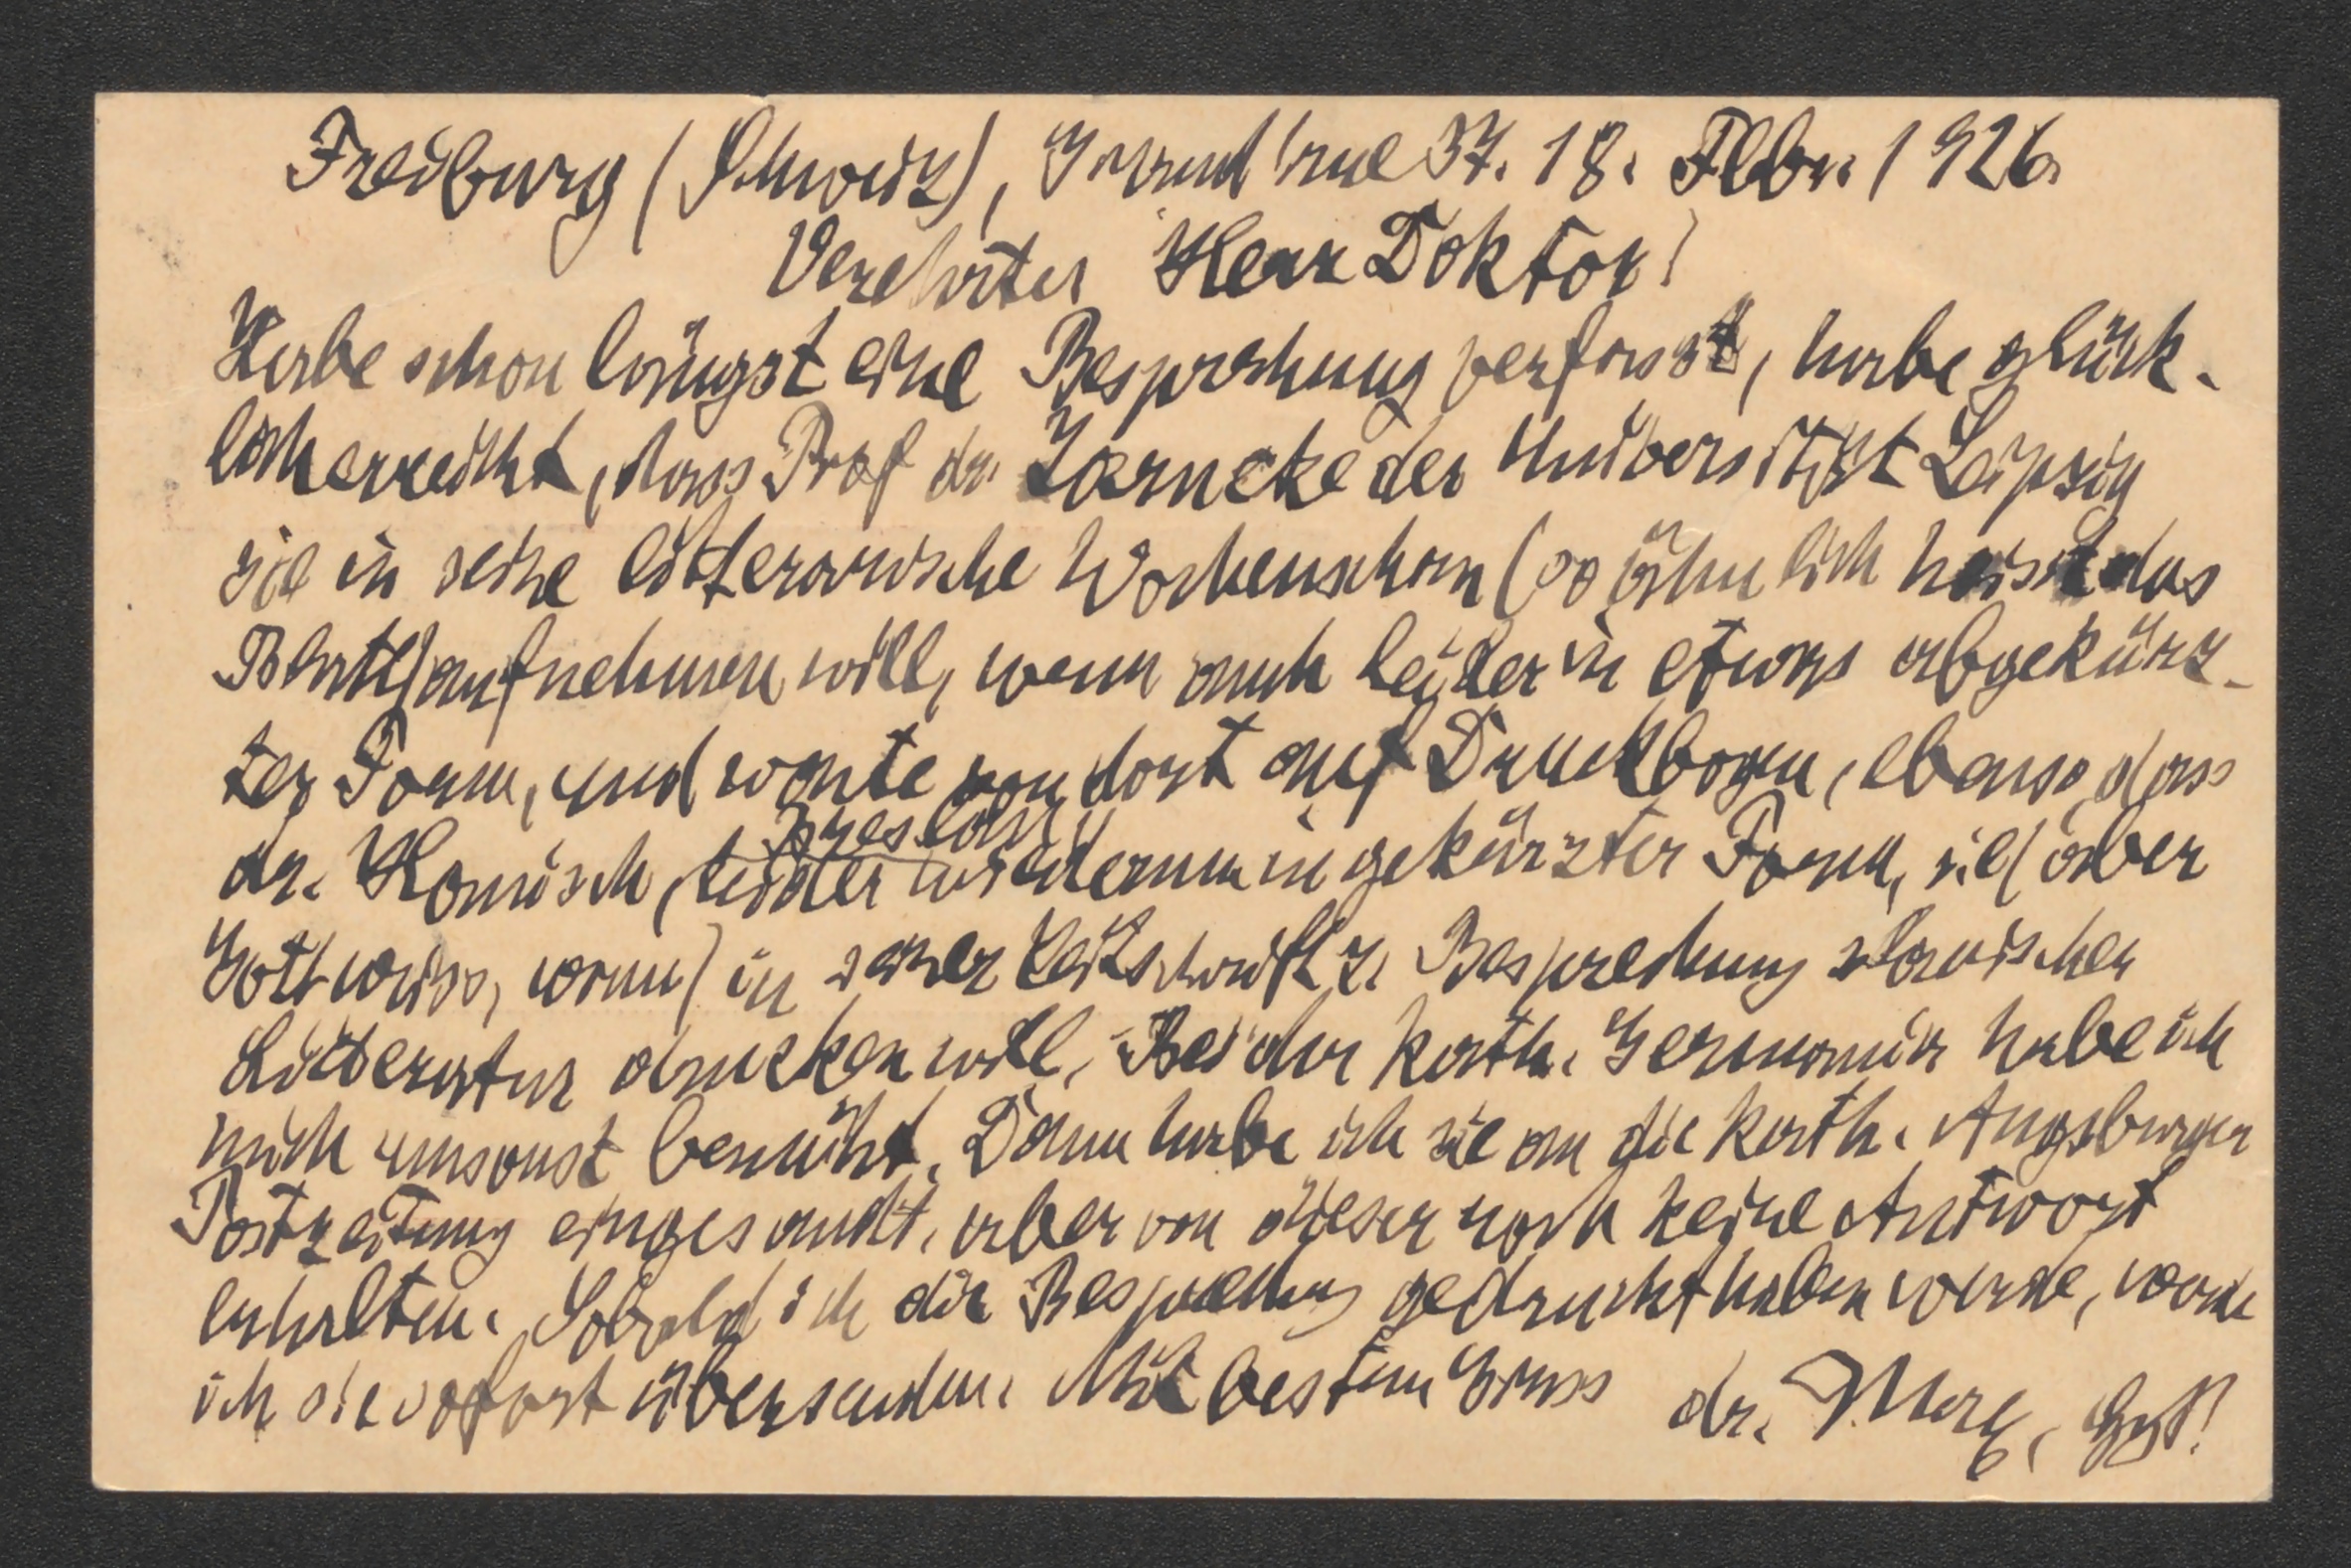 Freiburg (Schweiz), Grand'rue 37. 18. Febr. 1926.
Verehrter Herr Doktor!
Habe schon längst eine Besprechung verfasst, habe glück-
lich erreicht, dass Prof dr. Zarncke der Universität Leipzig
sie in seine litterarische Wochenschau (so ähnlich heisst das
Blatt) aufnehmen will, wenn auch leider in etwas abgekürz-
ter Form, und warte von dort auf Druckbogen, ebenso, dass
Breslau
dr. Hanisch, leider wiederum in gekürzter Form, sie (aber
Gott weiss, wann) in seiner Zeitschrift z. Besprechung slavischer
Litteratur drucken will. Bei der kath. Germania habe ich
mich umsonst bemüht. Dann habe ich sie an die kath. Augsburger
Postzeitung eingesandt, aber von dieser noch keine Antwort
erhalten. Sobald ich die Besprechung gedruckt haben werde, werde
ich sie sofort übersenden. Mit bestem Gruss dr.